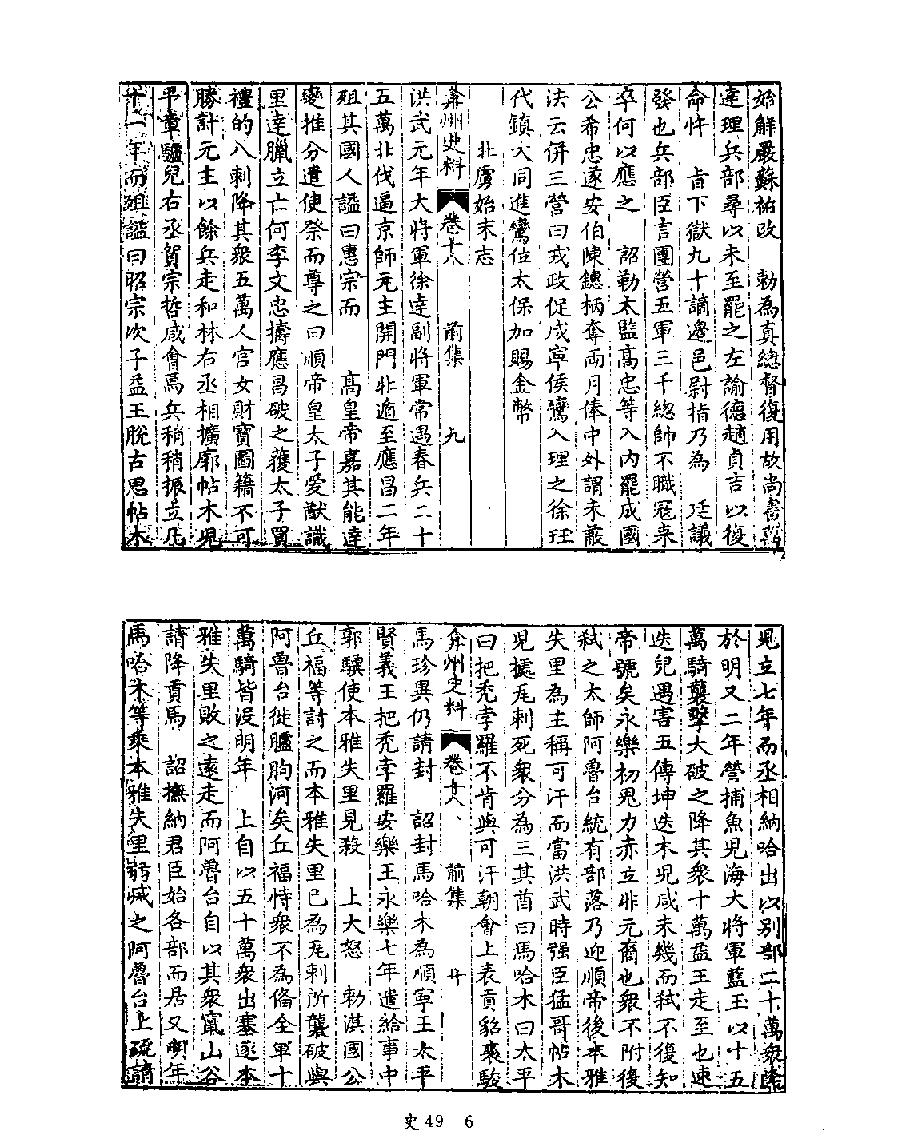 始解嚴蘇祐改　勅為真總督復用故尚書
達理兵部尋以未至罷之左諭德趙貞吉以復
命忤　旨下獄九十謫邊邑尉指乃為　廷議
發也兵部臣言團營五軍三千總帥不職冦來
卒何以應之　詔勒太監高忠等入內罷成國
公希忠遂安伯陳鏸柄奪兩月俸中外謂未厭
法云併三營曰戎政促咸寧侯鸞入理之徐珏
代鎮大同進鸞位太保加賜金幣
北虜始末志
弇州史料　卷十八　前集　九
洪武元年大將軍徐達副將軍常遇春兵二十
五萬北伐逼京師元主開門北遁至應昌二年
殂其國人謚曰惠宗而　高皇帝嘉其能達
變推分遣使祭而尊之曰順帝皇太子愛猷識
里達臘立亡何李文忠擣應昌破之獲太子買
禮的八剌降其衆五萬人宮女財寶圖籍不可
勝計元主以餘兵走和林右丞相擴廓帖木兒
平章驢兒右丞賀宗哲咸會焉兵稍稍振立凡
十一年而殂謚曰昭宗次子益王脫古思帖木
兒立七年而丞相納哈出以別部二十萬衆降
於明又二年營捕魚兒海大將軍藍玉以十五
萬騎襲擊大破之降其衆十萬益王走至也速
迭兒遇害五傳坤迭木兒咸未幾而弒不復知
帝號矣永樂初鬼力赤立非元裔也衆不附後
弒之太師阿魯台統有部落乃迎順帝後本雅
失里為主稱可汗而當洪武時强臣猛哥帖木
兒據瓦剌死衆分為三其酋曰馬哈木曰太平
曰把禿孛羅不肯與可汗朝會上表貢貂裘駿
弇州史料　卷十八　前集　廾
馬珍異仍請封　詔封馬哈木為順寧王太平
賢義王把禿孛羅安樂王永樂七年遣給事中
郭驥使本雅失里見殺　上大怒　勅淇國公
丘福等討之而本雅失里已為瓦剌所襲破與
阿魯台徙臚朐河矣丘福恃衆不為俻全軍十
萬騎皆沒明年　上自以五十萬衆出塞逐本
雅失里敗之遠走而阿魯台自以其衆竄山谷
請降貢馬　詔撫納君臣始各部而居又明年
馬哈木等乘本雅失里弱滅之阿魯台上疏請
史49　6